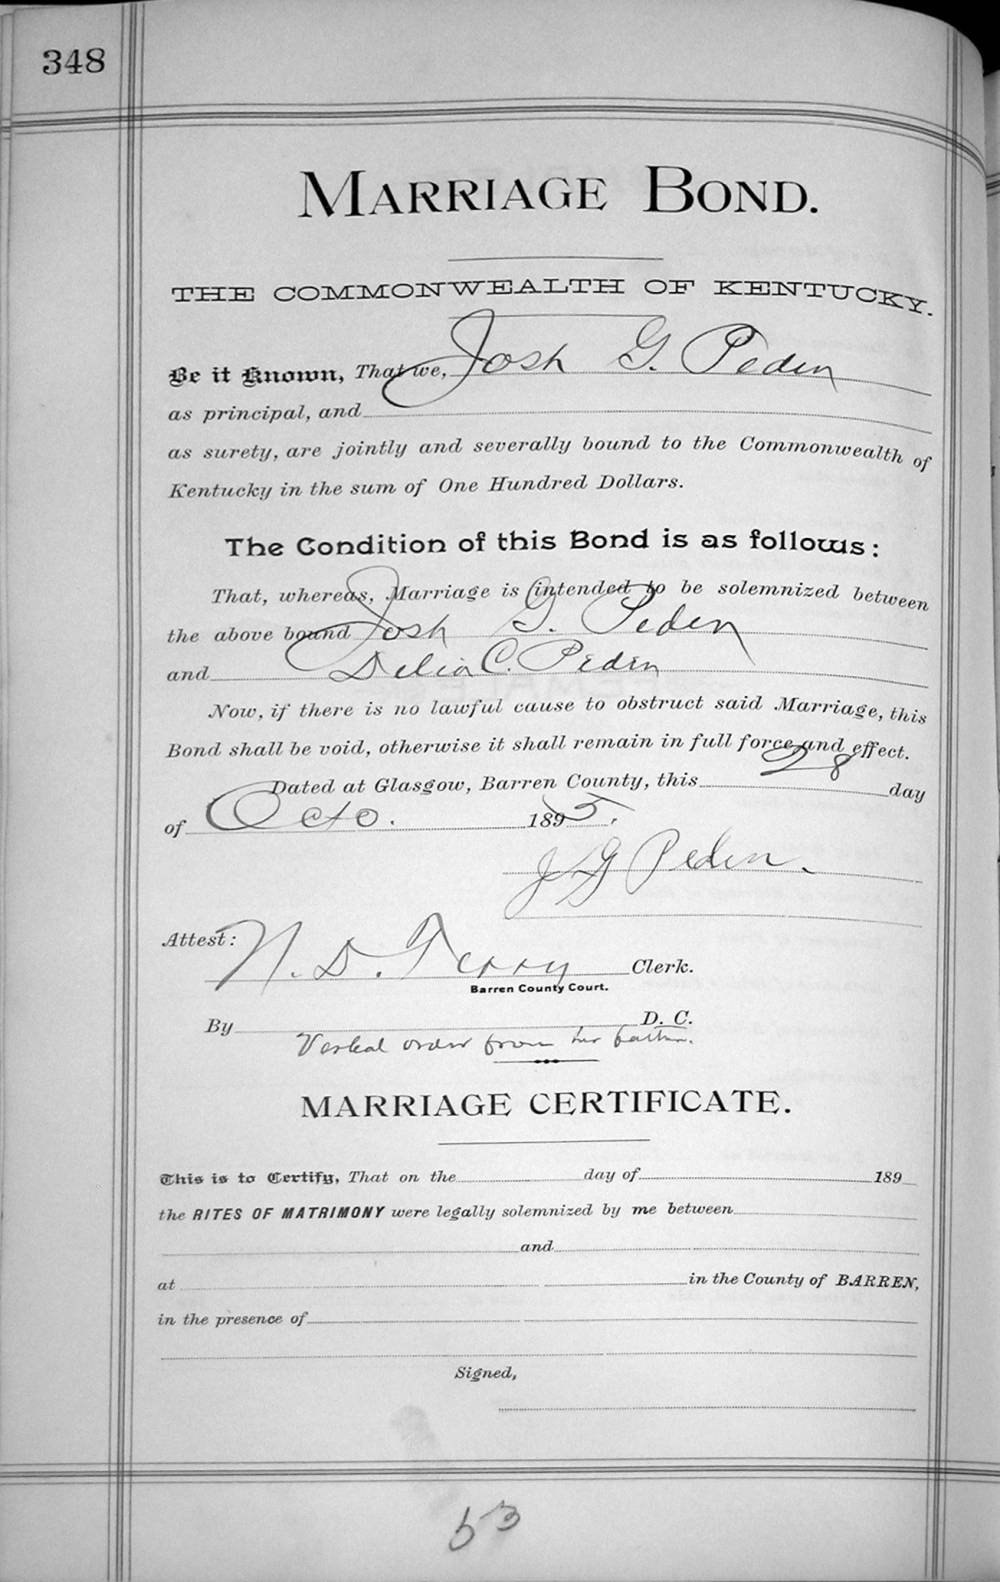 348
MARRIAGE BOND.
THE COMMONWEALTH OF KENTUCKY.
Be it Known, That we, Josh G. Peden
as principal, and
as surety, are jointly and severally bound to the Commonwealth of
Kentucky in the sum of One Hundred Dollars.
The Condition of this Bond is as follows:
That, whereas, Marriage is intended to be solemnized between
the above bound Josh G. Peden
and Delia C. Peden
Now, if there is no lawful cause to obstruct said Marriage, this
Bond shall be void, otherwise it shall remain in full force and effect.
Dated at Glasgow, Barren County, this 28 day
of Octo. 1895.
J G Peden.
Attest: N. D. Terry Clerk.
Barren County Court.
By D. C.
Verbal order from her father.
MARRIAGE CERTIFICATE.
This is to Certify, That on the day of 189
the RITES OF MATRIMONY were legally solemnized by me between
and
at in the County of BARREN,
in the presence of
Signed,
53